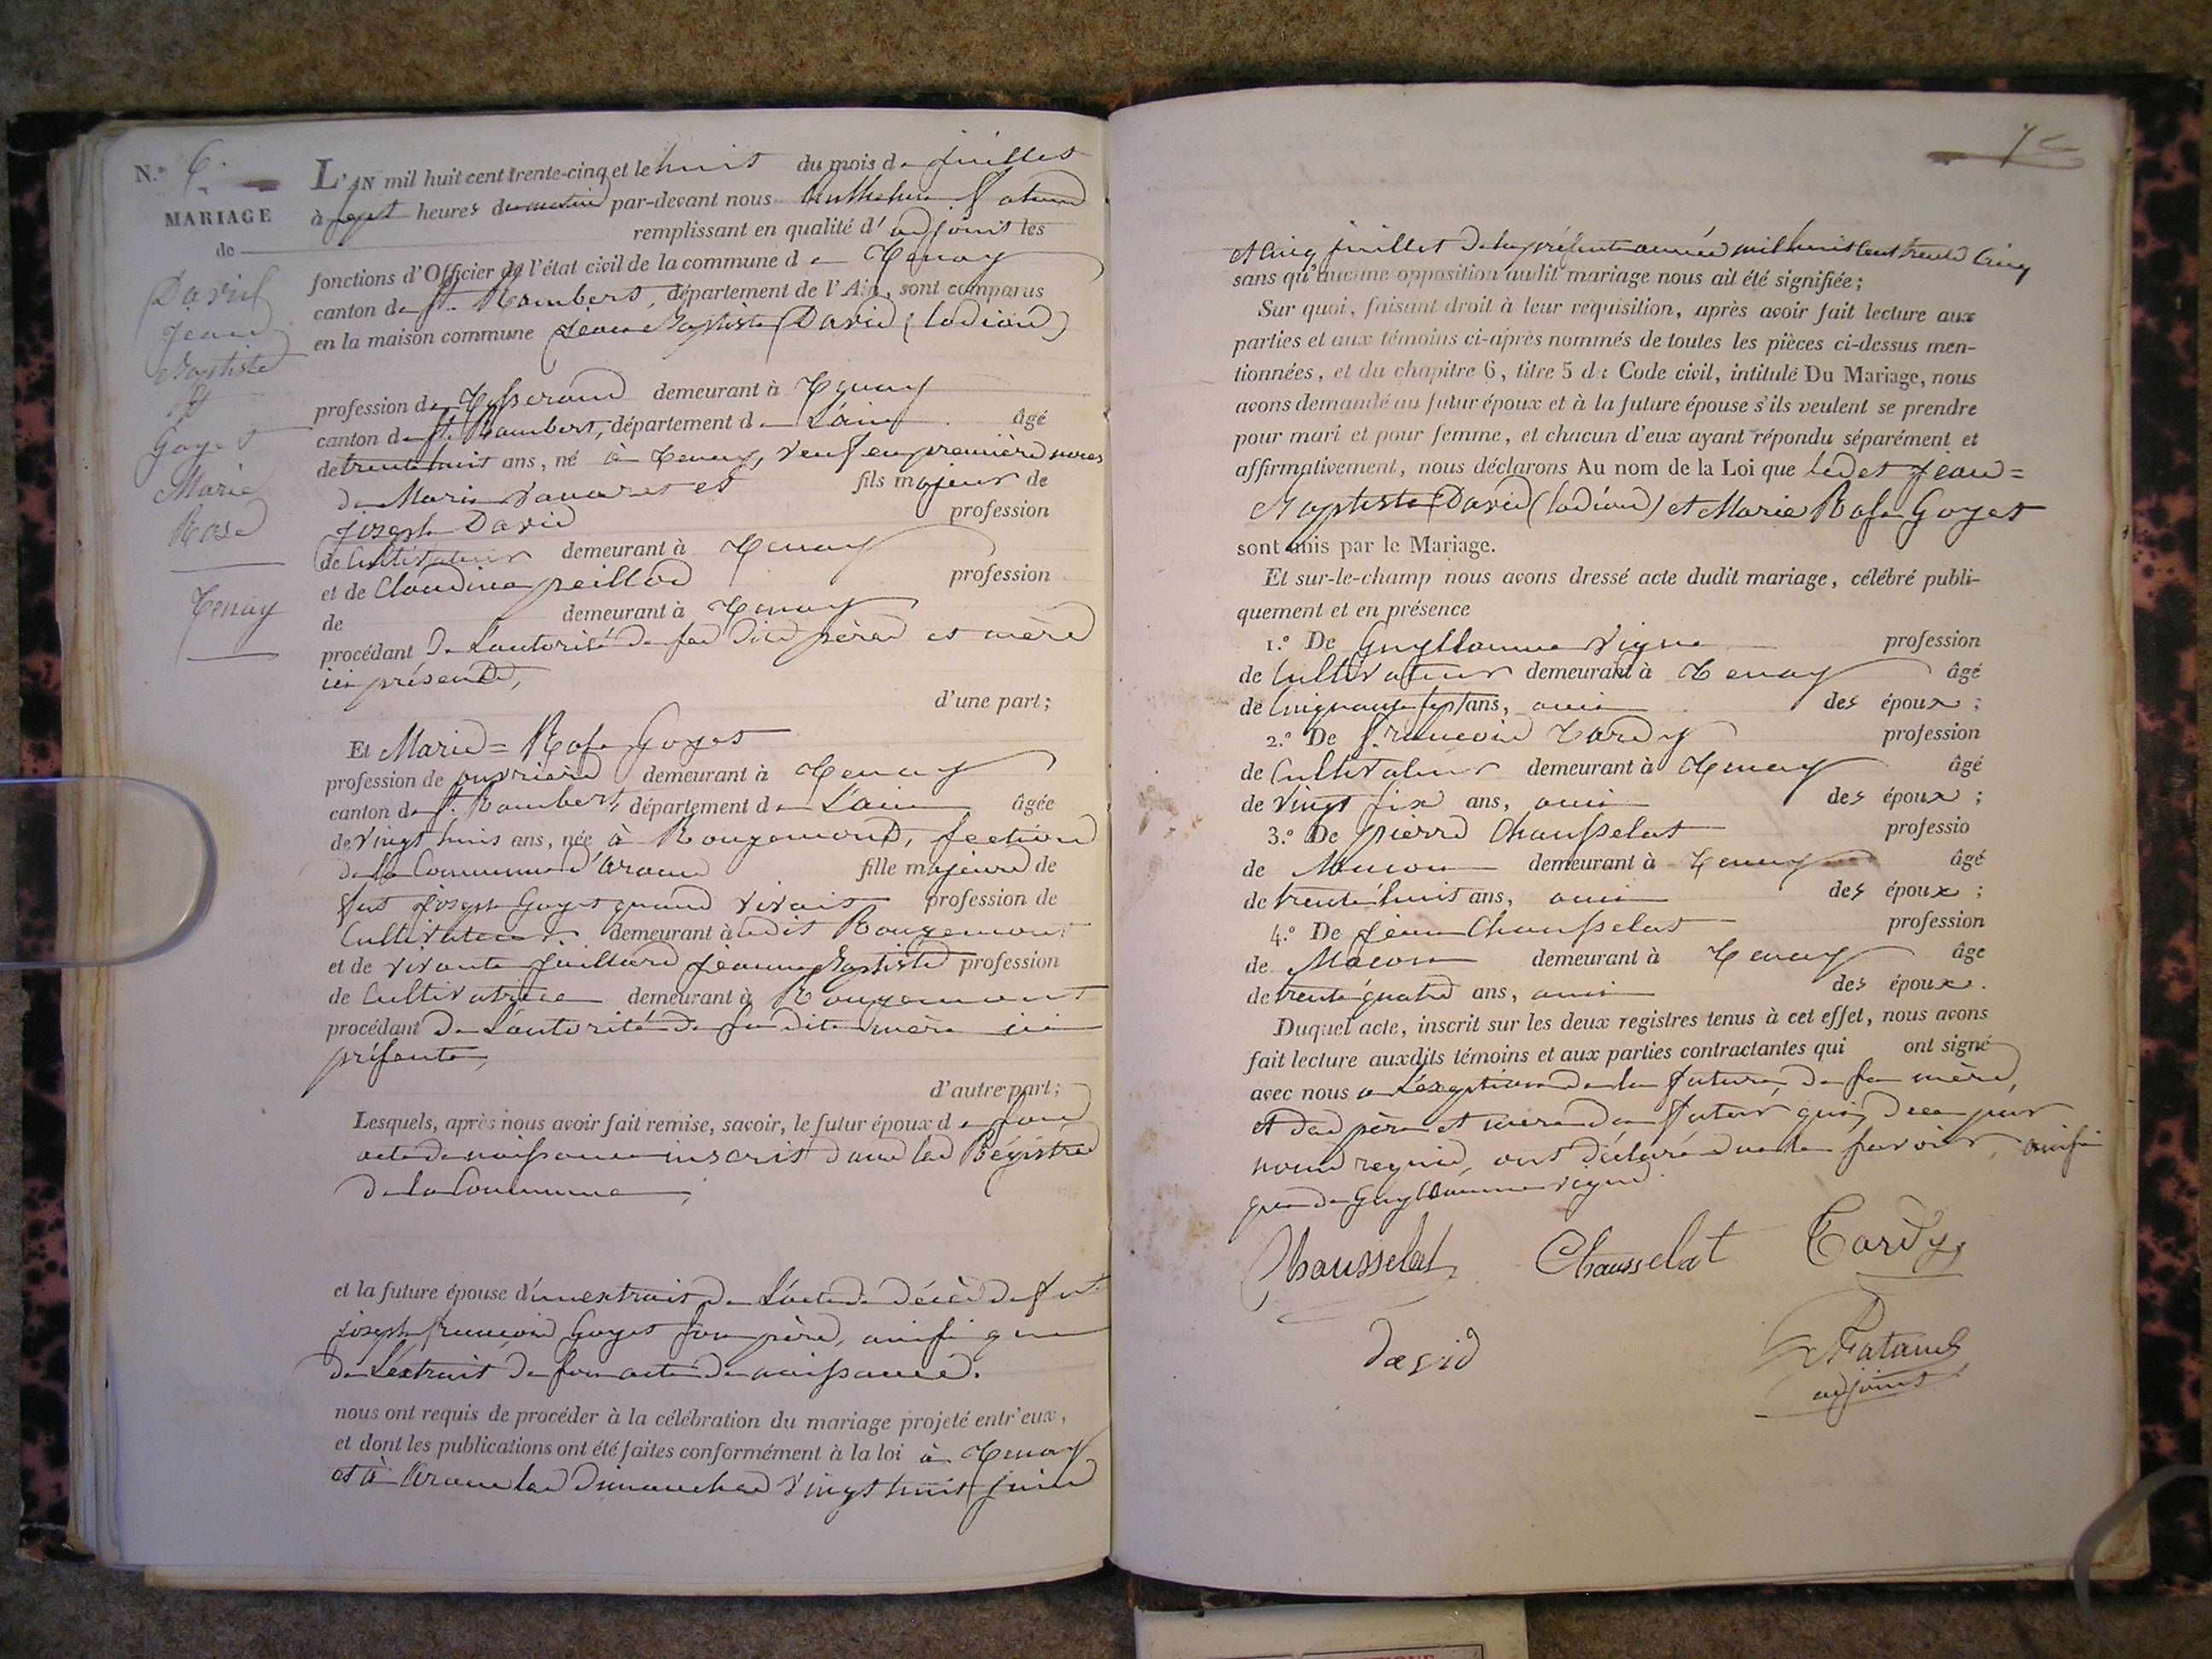 N.º 6.
MARIAGE
de
David
Jean
Baptiste
et
Goyet
Marie
Rose
Tenay
L'AN mil huit cent trente-cinq et le huit du mois de juillet
à sept heures du matin par-devant nous Anthelme Fatand
remplissant en qualité d'adjoint les
fonctions d'Officier de l'état civil de la commune de Tenay
canton de St. Rambert, département de l'Ain, sont comparus
en la maison commune Jean Baptiste David (Lodiou)
profession de Tysserand demeurant à Tenay
canton de St. Rambert, département de L'ain âgé
de trente huit ans, né à Tenay, veuf en première noces
de Marie et fils majeur de
Joseph David profession
de Cultivateur demeurant à Tenay
et de Claudine peillod profession
de demeurant à Tenay
procédant De L'autorité de ses dits père et mère
ici présents,
d'une part;
Et Marie=Rose Goyet
profession de ouvrière demeurant à Tenay
canton de St. Rambert, département de L'ain âgée
de vingt huit ans, née à Rougemont, section
de la Commune d'arane fille majeure de
feut Joseph Goyet quand vivait profession de
Cultivateur demeurant à dit Rougemont
et de vivante Juillard Jeanne Baptiste profession
de Cultivatrice demeurant à Rougemont
procédant De L'autorité de sa dite mère ici
présente,
d'autre part;
Lesquels, après nous avoir fait remise, savoir, le futur époux de son
acte de naissance inscrit dans les Régistres
de la Commune;
et la future épouse d'un extrait de L'acte de décès de feut
Joseph françois Goyet son père, ainsi que
de L'extrait de son acte de naissance.
nous ont requis de procéder à la célébration du mariage projeté entr'eux,
et dont les publications ont été faites conformément à la loi à Tenay
et à Arane les Dimanches vingt huit juin
et Cinq juillet de la présente année mil huit cent trente Cinq
sans qu'aucune opposition audit mariage nous ait été signifiée;
Sur quoi, faisant droit à leur requisition, après avoir fait lecture aux
parties et aux témoins ci-après nommés de toutes les pièces ci-dessus men-
tionnées, et du chapitre 6, titre 5 du Code civil, intitulé Du Mariage, nous
avons demandé au futur époux et à la future épouse s'ils veulent se prendre
pour mari et pour femme, et chacun d'eux ayant répondu séparément et
affirmativement, nous déclarons Au nom de la Loi que Jean=
Baptiste David (Lodiou) et Marie Rose Goyet
sont unis par le Mariage.
Et sur-le-champ nous avons dressé acte dudit mariage, célébré publi-
quement et en présence
1.º De Guyllaume Vigne profession
de Cultivateur demeurant à Tenay âgé
de Cinquante sept ans, ami des époux;
2.º De françois Tardy profession
de Cultivateur demeurant à Tenay âgé
de vingt six ans, ami des époux;
3.º De pierre Chausselat professio
de Macon demeurant à Tenay âgé
de trente huit ans, ami des époux;
4.º De Jean Chausselat profession
de Macon demeurant à Tenay âgé
de trente quatre ans, ami des époux.
Duquel acte, inscrit sur les deux registres tenus à cet effet, nous avons
fait lecture auxdits témoins et aux parties contractantes qui ont signé
avec nous a L'exeption de la future, de sa mère,
et des père et mère du futur qui, de ce par
nous requis, ont déclaré ne le savoir, ainsi
que de Guyllaume vigne.
Chausselat Chausselat Tardy
David Fatand
adjoint